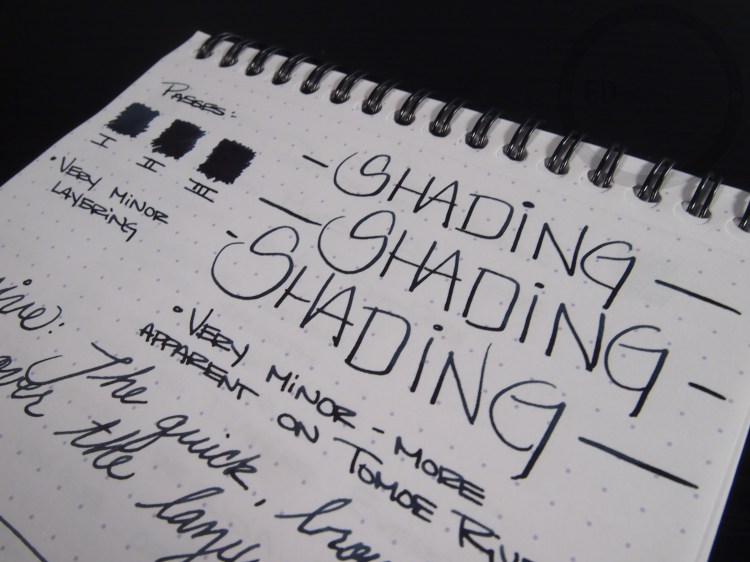 Passes:
I II III
• VERY MINOR
LAYERING
- SHADING -
- SHADING -
- SHADING -
• VERY MINOR - MORE
APPARENT ON TOMOE
The quick,
over the lazy